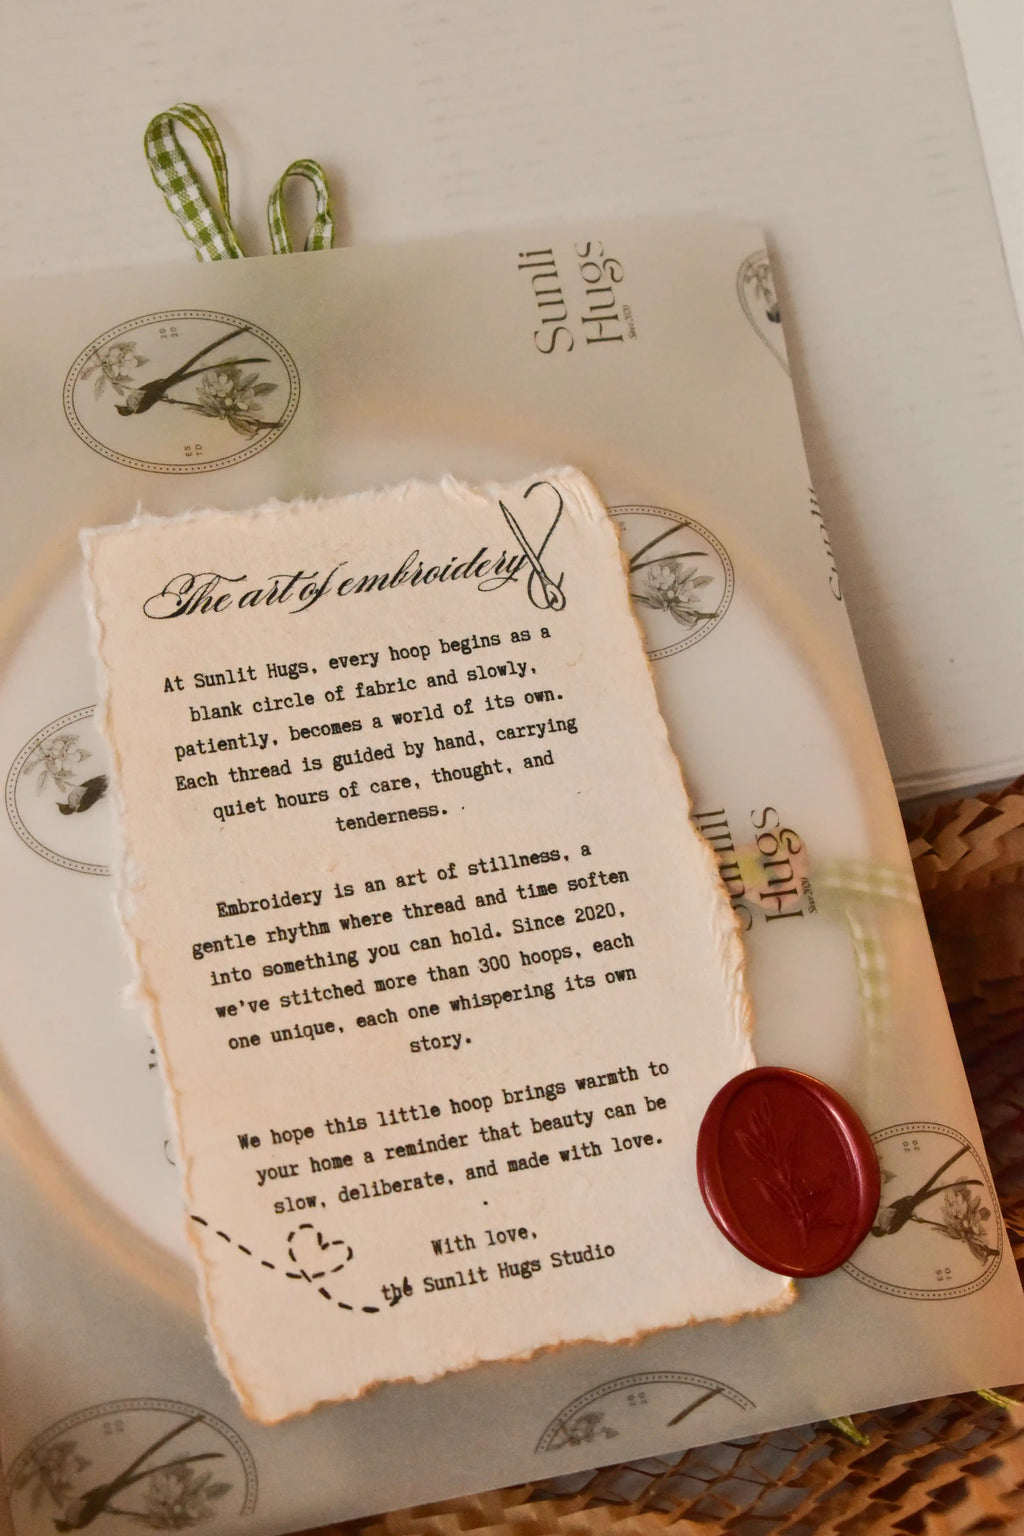 Sunli
Hugs
Since 2020
20
20
ES
TD
The art of embroidery
At Sunlit Hugs, every hoop begins as a
blank circle of fabric and slowly,
patiently, becomes a world of its own.
Each thread is guided by hand, carrying
quiet hours of care, thought, and
tenderness.
Embroidery is an art of stillness, a
gentle rhythm where thread and time soften
into something you can hold. Since 2020,
we've stitched more than 300 hoops, each
one unique, each one whispering its own
story.
We hope this little hoop brings warmth to
your home a reminder that beauty can be
slow, deliberate, and made with love.
With love,
the Sunlit Hugs Studio
Hugs
Since 2020
20
20
ES
TD
20
20
20
20